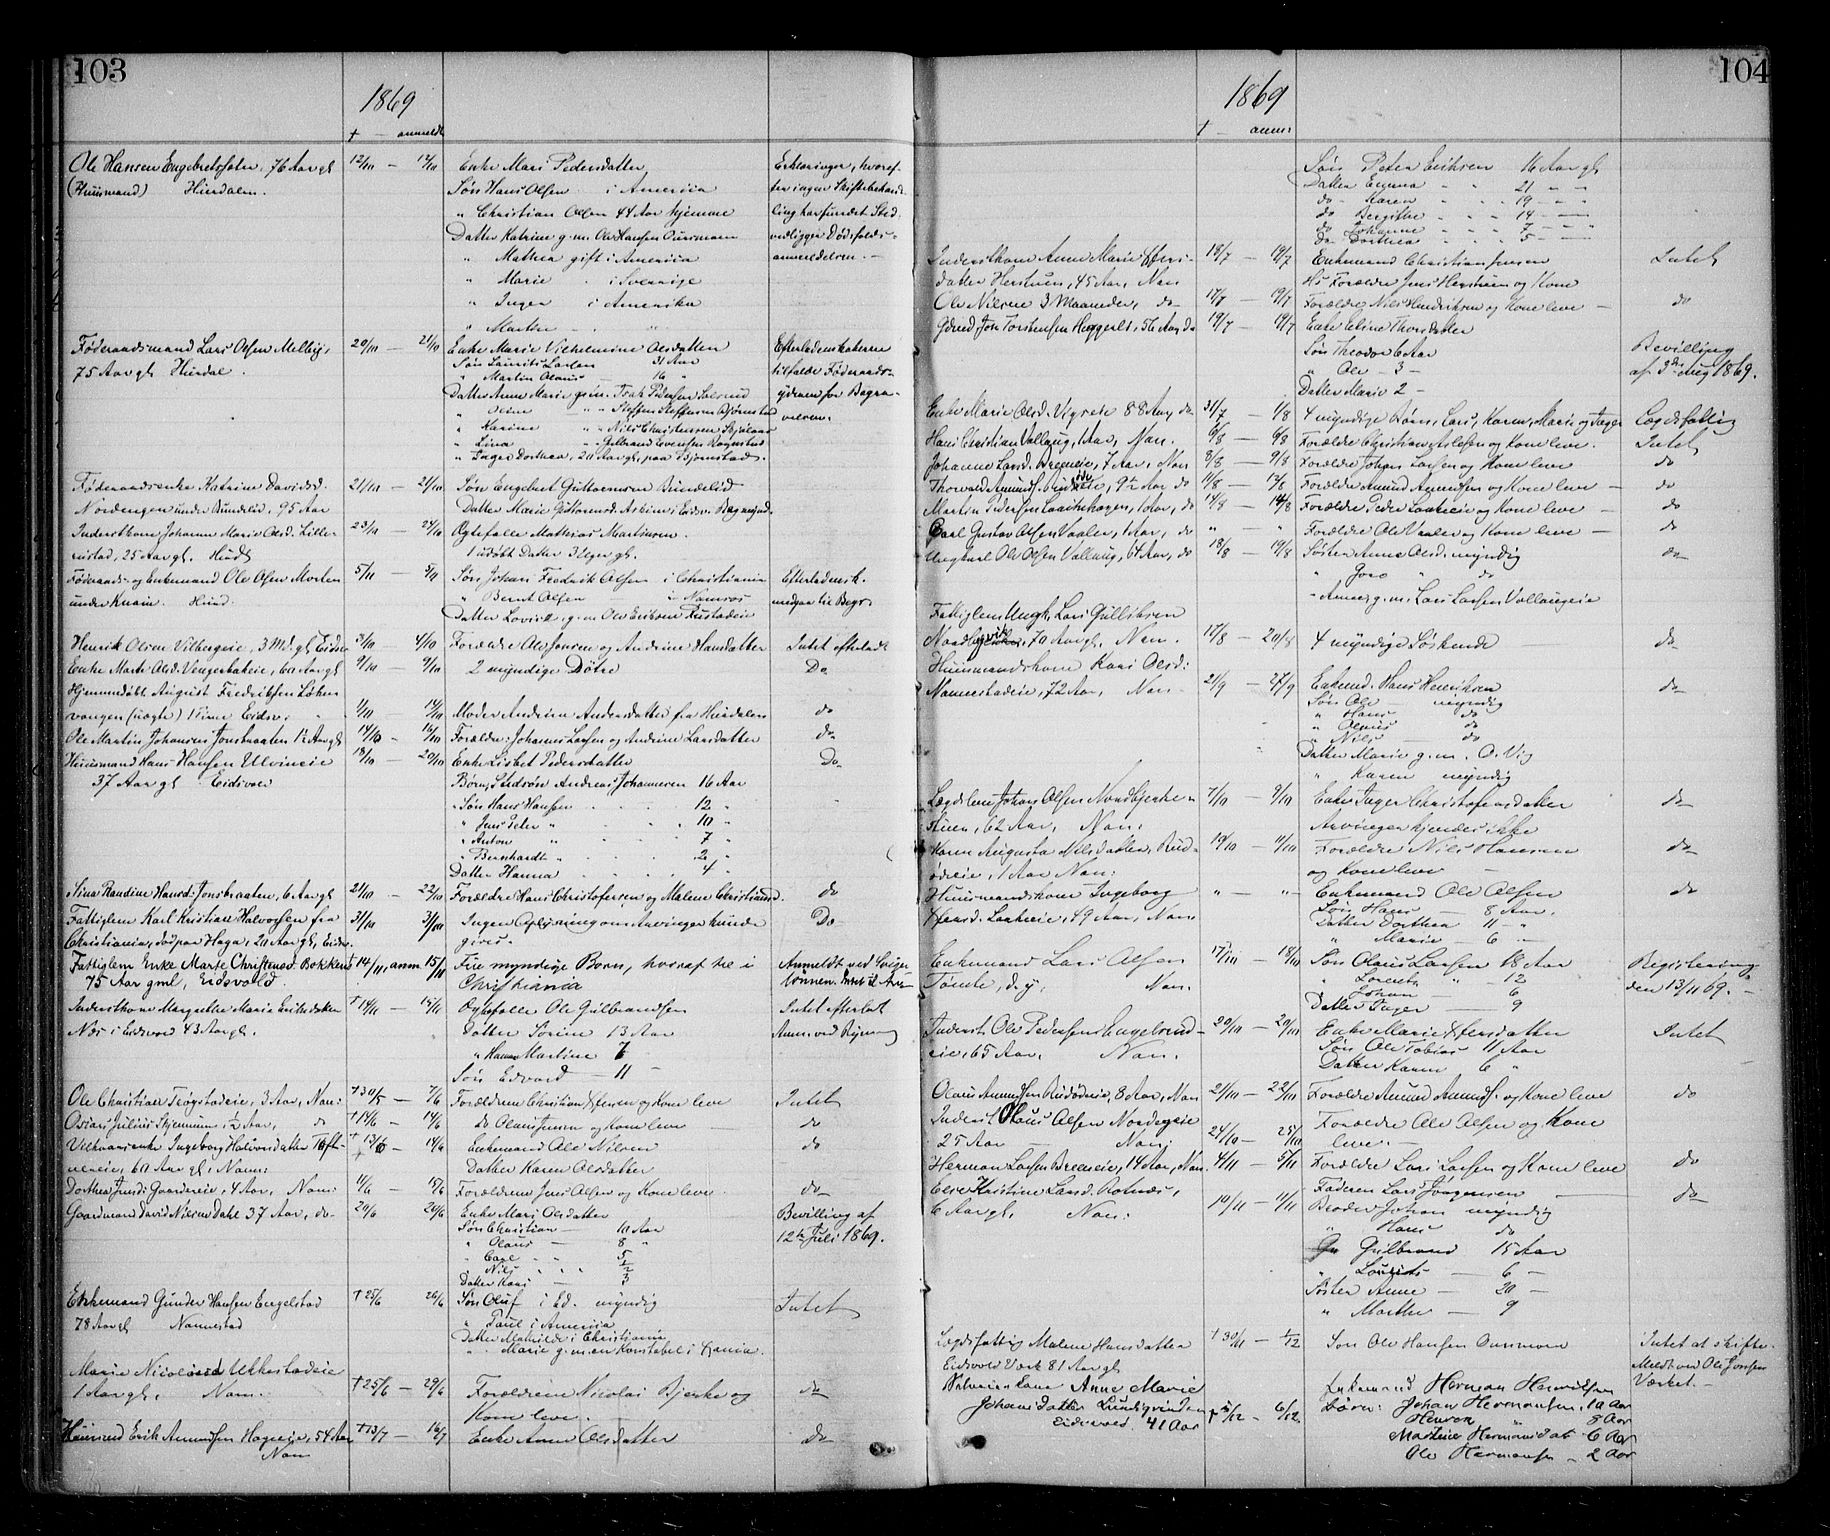 103
1869
† — anmeldt
Ole Hansen Engebretsfalen, 76 Aar gl. 12/10 — 12/10 Enke Mari Pedersdatter Erklæringer, hvoref-
(Huusmand) Hurdalen. Søn Hans Olsen i America ter ingen Skiftebehand-
" Christian Olsen 44 Aar hjemme ling har fundet Sted
Datter Katrine g. m. Ole Hansen vedligger Dødsfalds-
" Mathea gift i America anmeldelsen. —
" Marie " i Sverrige
" Inger i Amerika
" Marthe — "
Føderaadsmand Lars Olsen Melby, 20/10 — 21/10 Enke Marie Vilhelmine Olsdatter Efterladenskaberne
75 Aar gl. Hurdal. Søn Laurits Larsen 31 Aar tilfaldt Føderaads-
" Martin Olaus — 16 " yderen for Begra-
Datter Anne Marie g. m. Pedersen velsen.
" " " Steffen Steffensen Bjørnstad
" Karine " " Nils Christensen
" Lina " Gulbrand Evensen Rognstad
" Inger Dorthea, 20 Aar gl. paa Bjørnstad.
Føderaadsenke Katrine Davidsd. 21/10 — 21/10 Søn Engebret Guttormsen Rundelid
Nordengen under Rundelid, 95 Aar Datter Marie Guttormsd.
Inderstkone Johanne Marie Olsd. Lille- 23/10 — 24/10 Ægtefælle Mathias Martinsen.
rustad, 25 Aar gl. Hurd. 1 udøbt Datter 3 Uger gl.
Føderaads- og Enkemand Ole Olsen Morten 5/11 — 5/11 Søn Johan Fredrik Olsen i Christiania Efterladensk.
under Knai. Hurd. " Bernt Olsen i Namsos medgaa til Begr.
Datter Lovise g. m. Ole Eriksen Rustadeie
Henrik Olsen Vilbergeie, 3 Md. gl. Eidsv. 3/10 4/10 Forældre Ole Jensen og Andrine Hansdatter Intet efterladt
Enke Marte Olsd. Vengerbakeie, 60 Aar gl. 9/10 — 9/10 2 myndige Døtre Do
Hjemmedøbt August Fredriksen Løken
vangen (uægte) 1 Time Eidsv. 1/10 — 14/10 Moder Andrine Andersdatter fra Hurdalen do
Ole Martin Johansen Jonsbraaten 1½ Aar gl. 14/10 — 16/10 Forældre: Johannes Larsen og Andrine Larsdatter do
Huusmand Hans Hansen Ulvineie 18/10 — 20/10 Enke Lisbet Pedersdatter Do
37 Aar gl. Eidsvold Børn, Stedsøn Andreas Johannesen 16 Aar
" Søn Hans Hansen 12 "
" Jens Peter " 10 "
" Anton " 7 "
" Bernhardt " 2 "
Datter Hanna 4 "
Stina Randine Hansd. Jonsbraaten, 6 Aar gl. 21/10 — 22/10 Forældre Hans Christofersen og Malene Christiansd. do
Fattiglem Karl Kristian Halvorsen fra 31/10 3/11 Ingen Oplysning om Arvinger kunde Do
Christiania, død paa Haga, 20 Aar gl. Eidsv. gives.
Fattiglem Enke Marte Christensd. Bokken † 14/11, anm 15/11 Fire myndige Børn, hvoraf tre i Anmeldt ved Sviger-
75 Aar gml, Eidsvold. Christiania sønnen. Intet til Arv
Inderstkone Margrethe Marie Eriksdatter † 14/11 — 15/11 Ægtefælle Ole Gulbrandsen Intet efterladt
Næs i Eidsvold 43 Aar gl. Datter Sørine 13 Aar
" Martine 7 —
Søn Edvard — 11 —
Ole Christian Trøgstadeie, 3 Aar, Nan: † 30/5 — 7/6 Forældrene Christian og Kone leve Intet
Oscar Julius Skjennum, ½ Aar, do † 14/6 — 14/6 do Olaus Jensen og Kone leve — do
Vilkaarsenke Ingeborg Halvorsdatter Tofte- † 13/6 — 14/6 Enkemand Ole Nilsen do
neie, 60 Aar gl. Nann: Datter Karen Olsdatter
Dorthea Jensd. Gaardereie, 4 Aar, Nan: 11/6 — 15/6 Forældrene Jens Olsen og Kone leve. do
Gaardmand David Nilsen Dahl 37 Aar, do 20/6 20/6 Enke Mari Olsdatter Bevilling af
Søn Christian — 10 Aar 12te Juli 1869.
" Olaus — 8 "
" Carl " 5
" Nils " ½
Datter Kari — 3
Enkemand Gunder Hansen Engelstad † 25/6 26/6 Søn Oluf i Ed. myndig Intet
78 Aar gl. Nannestad " Paul i America
Datter Mathilde i Christiania
" Marie g. m. en Konstabel i Xania.
Marie Nicolaisd Ukkestadeie
1 Aar gl. Nann. † 25/6 — 29/6 Forældrene Nicolai Bjerke og do
Kone leve.
Huusmd Erik Amundsen Hagneie, 54 Aar † 13/7 — 16/7 Enke Anne Olsdatter do
Nan
104
1869
† — anm
Søn Peter Eriksen 16 Aar gl
Datter Emma " " 21 " "
do Karen " " 19 — "
do Bergithe " " 14 — "
do Johanne " " 7 — "
do Dorthea " 5 —
Inderstkone Anne Marie 18/7 — 19/7 Enkemand Christian Jensen Intet
datter Herstuen, 45 Aar, Nan Hs Forældre Jens Herstuen og Kone
Ole Nilsen 3 Maaneder, do 17/7 — 19/7 Forældre Nils Hendriksen og Kone leve — do
Gdmd. Jon Torstensen Heggerli, 56 Aar do 19/7 — 19/7 Enke Thorsdatter
Søn Theodor 6 Aar Bevilling
" Ole — 3 — af 3die Aug 1869.
Datter Marie 2 —
Enke Marie Olsd. 88 Aar, do 31/7 — 1/8 4 myndige Børn, Lars, Karen, Marie og Inger Lægdsfattig
Hans Christian Vallaug, 1 Aar, Nan. 6/8 — 6/8 Forældre Christian og Kone leve. Intet
Johanne Larsd. Breeneie, 7 Aar, Nan 8/8 — 9/8 Forældre Johan Larsen og Kone leve do
Thorvald Amundsen, 9½ Aar do 11/8 — 12/8 Forældre Amund Amundsen og Kone leve — do
Martin Pedersen Laakehagen, 1 Aar, do 14/8 — 14/8 Forældre Peder Laakeeie og Kone leve — do
Carl Gustav Olsen Vaaler, 1 Aar, do " — " Forældre Ole Vaaler og Kone leve — do
Ungkarl Ole Olsen Vallaug, 64 Aar, do 18/8 — 19/8 Søster Anne Olsd. myndig do
" Goro " do
" Anne g. m. Lars Larsen Vallaugeie
Fattiglem Ungk. Lars Gulliksen
70 Aar gl. Nan. 17/8 — 20/8 4 myndige Søskende do
Huusmandskone Kari Olsd:
Nannestadeie, 72 Aar, Nan 21/9 — 27/9 Enkemd. Hans Henriksen do
Søn Ole — myndig
" Hans do
" Olaus do
" Nils — do
Datter Marie g. m. O. Vig
" Karen myndig
Lægdslem Johan Olsen Nordbjerke- 7/10 — 9/10 Enke Inger Christofersdatter do
stuen, 62 Aar, Nan: Arvinger kjendes ikke
Karen Augusta Nilsdatter, Rud- 10/10 — 11/10 Forældre Nils Hansen do
ødeie, 1 Aar Nan: og Kone leve —
Huusmandskone Ingeborg " — " Enkemand Ole Olsen do
Laakeeie, 49 Aar, Nan. Søn Hans — 8 Aar.
Datter Dorthea 11 — "
" Marie — 6 —
Enkemand Lars Olsen 17/10 — 18/10 Søn Olaus Larsen 18 Aar Registrering
Tømte, d. y. Nan. " Lorents " 12 den 13/11 69. —
" Johan — 6
Datter Inger — 9
Inderst Ole Pedersen Engelsrud- 20/10 — 20/10 Enke Marie Intet
eie, 65 Aar, Nan. Søn Ole Tobias 11 Aar
Datter Karen 6 "
Olaus Amundsen Rudødeie, 8 Aar, Nan 21/10 — 22/10 Forældre Amund Amundsen og Kone leve do
Inderst Olaus Olsen Nordereie Forældre Ole Olsen og Kone
25 Aar — Nan: 24/10 — 25/10 leve. —
Herman Larsen Breeneie, 14 Aar, Nan. 4/11 — 5/11 Forældre Lars Larsen og Kone leve do
Else Kristine Larsd. Rotnes, Faderen Lars Jørgensen do
6 Aar gl. Nan: 10/11 — 11/11 Broder Johan myndig
" Hans do
Gulbrand 15 Aar
" Laurits — 6 —
Søster Anne — 20 —
" Marthe — 9
Lægdsfattig Malene Hansdatter † 30/11 — 1/12 Søn Ole Hansen Intet at skifte.
Eidsvold Værk 81 Aar gl. Meldt ved Ole Jonsen
Anne Marie Enkemand Herman Henriksen Værket. —
Johansdatter † 5/12 6/12 Børn: Johan Hermansen, 10 Aar
Eidsvold. 41 Aar Henrik " 8 Aar
Martine Hermansdat 6 Aar
Ole Hermansen — 2 Aar